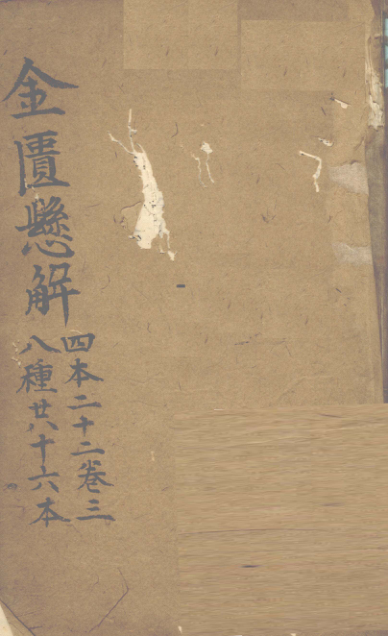 金匱懸解
四本二十二卷三
八種廿八十六本